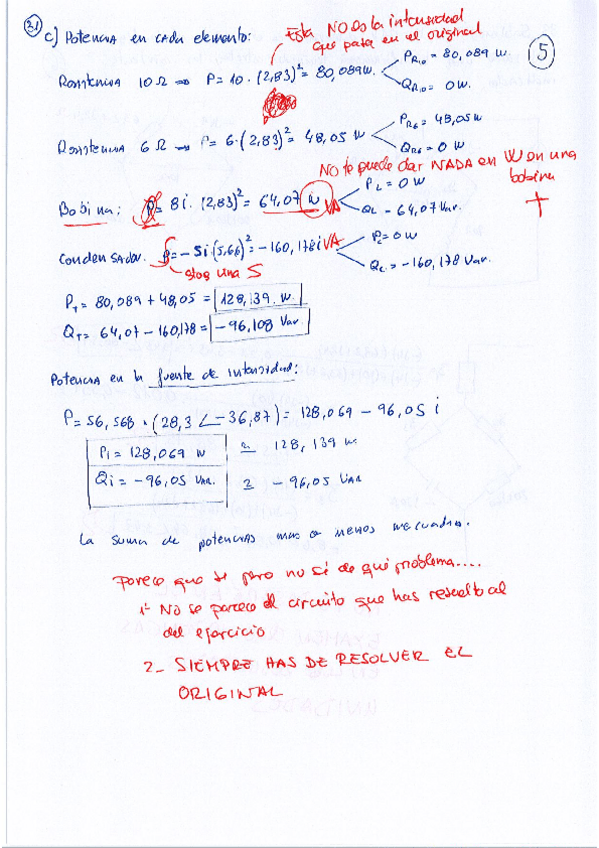 2.)
c) Potencia en cada elemento:
Esta NO es la intensidad
que pasa en el original
5
Resistencia 10 Ω ⇒ P = 10 · (2,83)² = 80,089 W.
P_R10 = 80,089 W.
Q_R10 = 0 W.
Resistencia 6 Ω ⇒ P = 6 · (2,83)² = 48,05 W
P_R6 = 48,05 W
Q_R6 = 0 W
No te puede dar NADA en W en una
bobina
Bobina: P = 8i · (2,83)² = 64,07 W VA
P_L = 0 W
Q_L = 64,07 Var.
Condensador. P = -5i · (5,66)² = -160,178i VA
P_C = 0 W
Q_C = -160,178 Var.
esto es una S
P_T = 80,089 + 48,05 = 128,139. W.
Q_T = 64,07 - 160,178 = -96,108 Var.
Potencia en la fuente de intensidad:
P = 56,568 · (28,3 ∠-36,87) = 128,069 - 96,05 i
Pi = 128,069 W ≃ 128,139 W
Qi = -96,05 VAR. ≃ -96,05 VAR
La suma de potencias mas o menos me cuadra.
Parece que si pero no sé de qué problema....
1- No se parece el circuito que has resuelto al
del ejercicio
2- SIEMPRE HAS DE RESOLVER EL
ORIGINAL